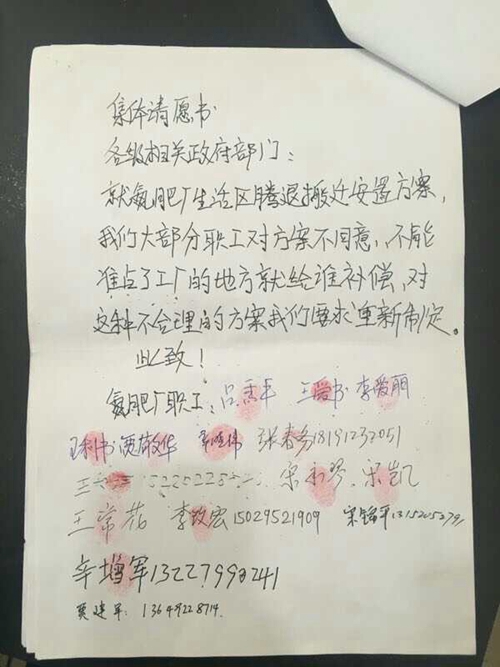 集体请愿书
各级相关政府部门：
就氨肥厂生活区腾退搬迁安置方案，
我们大部分职工对方案不同意，不能
谁占了工厂的地方就给谁补偿，对
这种不合理的方案我们要求重新制定。
此致！
氨肥厂职工：吕 王爱书 李爱丽
王利书 贾敬华 张春芳18191232051
王 宋永琴、宋凯
王常花 李改宏15029521909 宋锦平
辛增军13227990241
贾建军：13649228714.